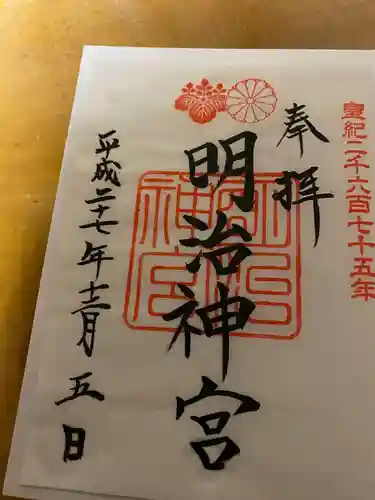 皇紀二千六百七十五年
奉拝
明治神宮
平成二十七年十二月五日